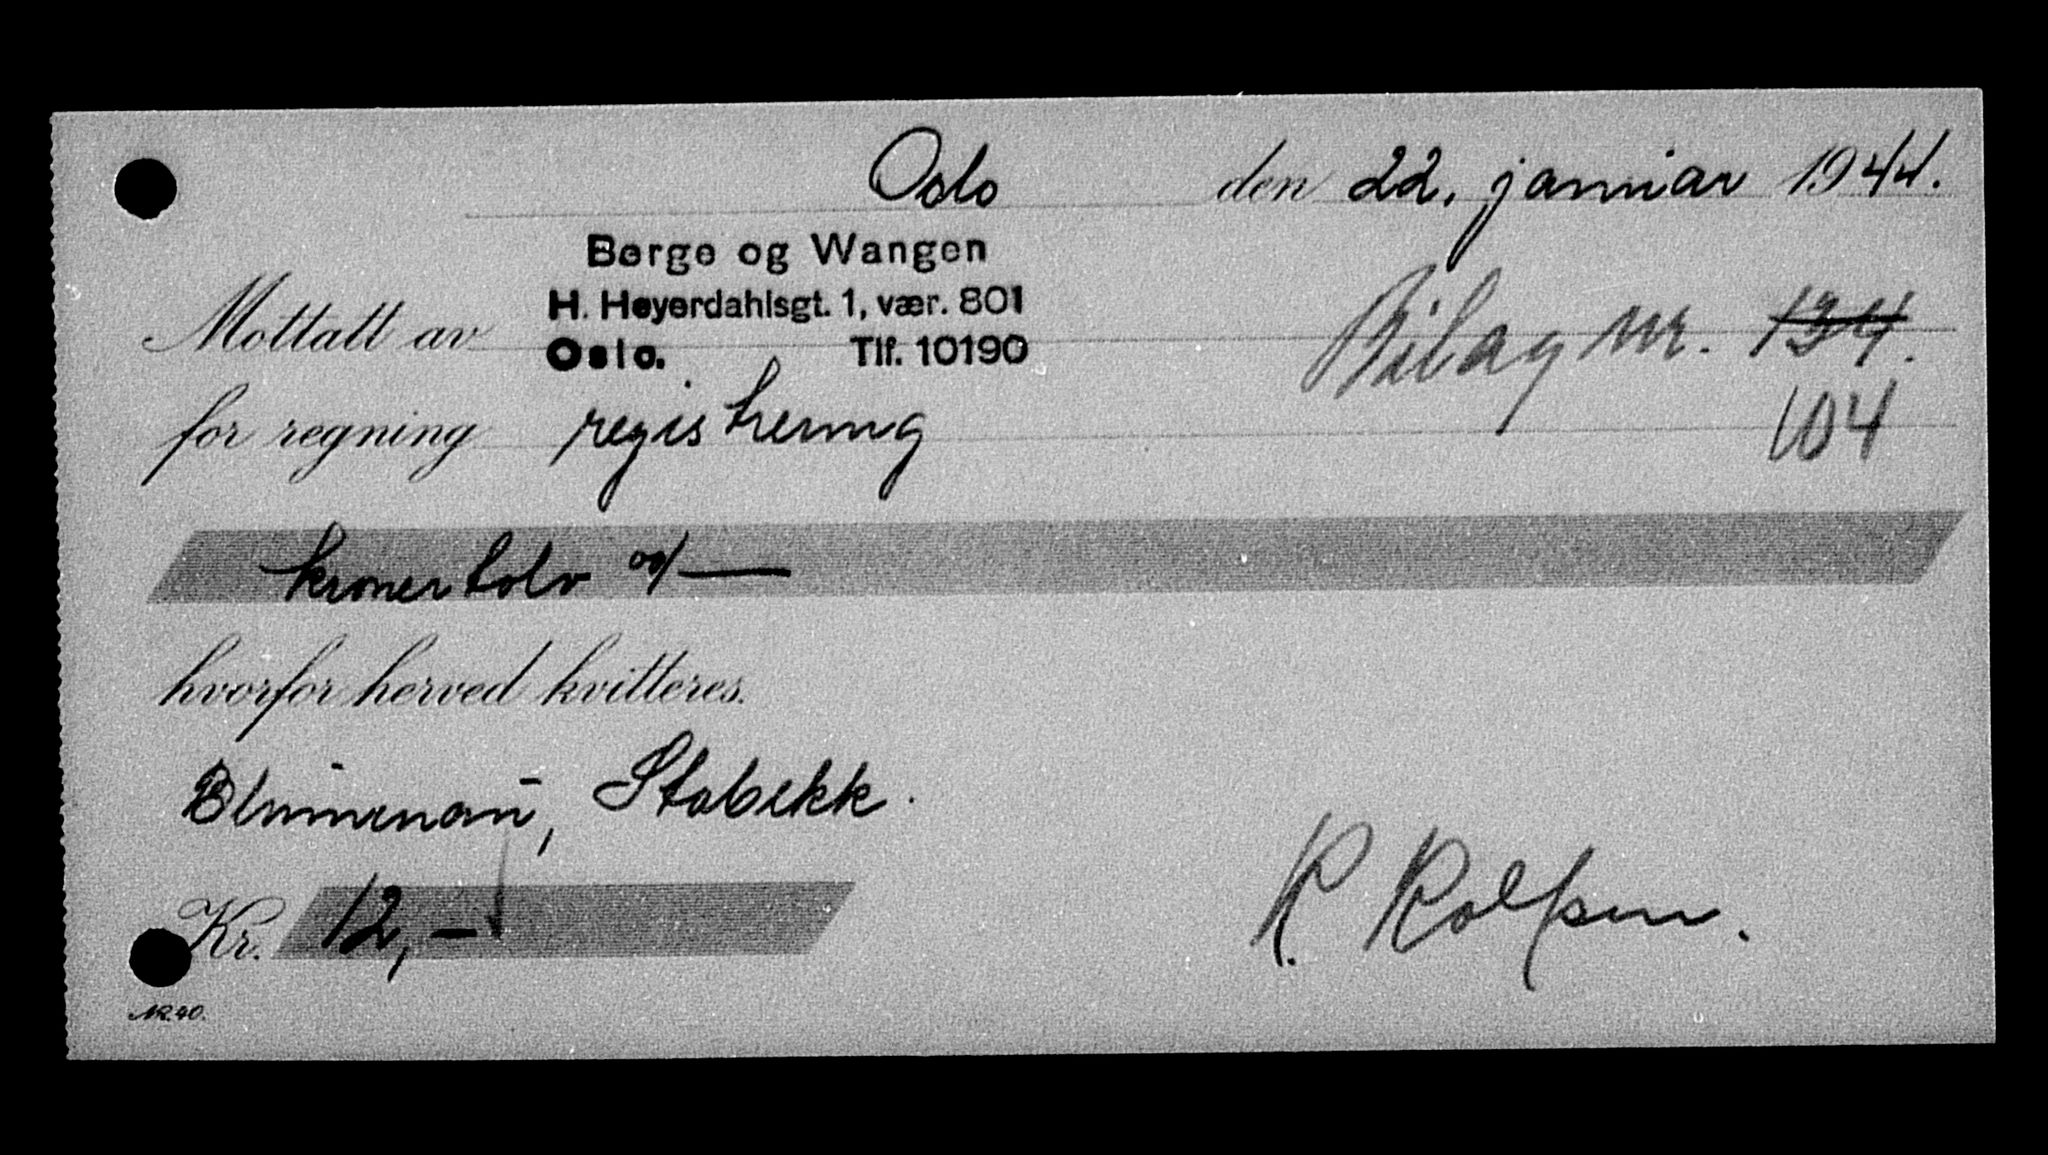 Oslo den 22. januar 1944.
Børge og Wangen
H. Heyerdahlsgt. 1, vær. 801
Mottatt av Oslo. Tlf. 10190
Bilag nr. 134.
104
for regning registrering
kroner tolv 00/—
hvorfor herved kvitteres.
Blumenau, Stabekk.
Kr. 12,-
R. Rolfsen.
NR. 40.